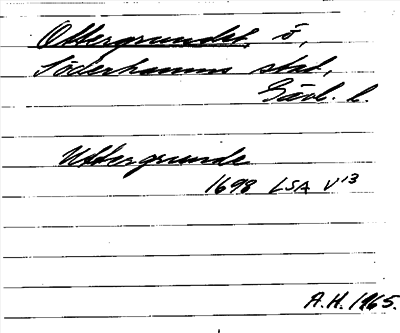 Ottergrundet, ö,
Söderhamns stad,
Gävl. l.
Uttergrunde
1698 LSA V13
A.H. 1965.